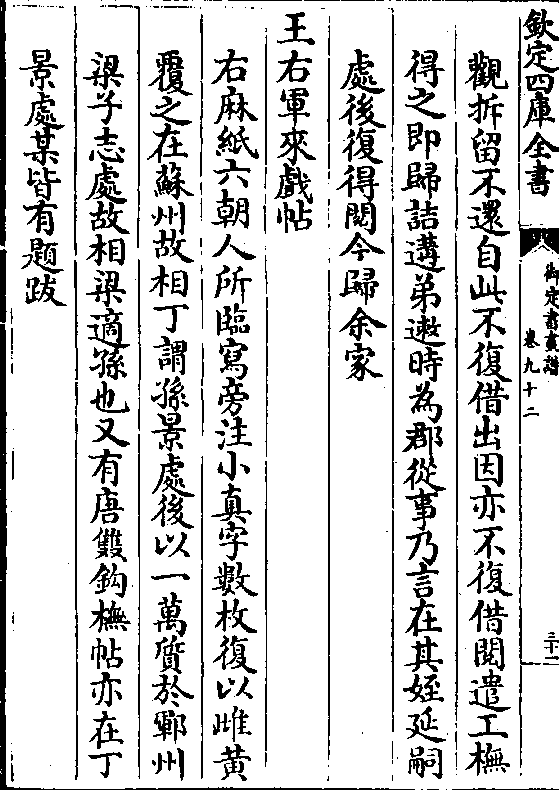 欽定四庫全書
御定書畫譜
卷九十二
三十一
觀拆留不還自此不復借出因亦不復借閱遣工橅
得之即歸詰遘弟遫時為郡從事乃言在其姪延嗣
處後復得閱今歸余家
王右軍來戲帖
右麻紙六朝人所臨寫旁注小真字數枚復以雌黄
覆之在蘇州故相丁謂孫景處後以一萬質於鄆州
梁子志處故相梁適孫也又有唐雙鈎橅帖亦在丁
景處某皆有題跋